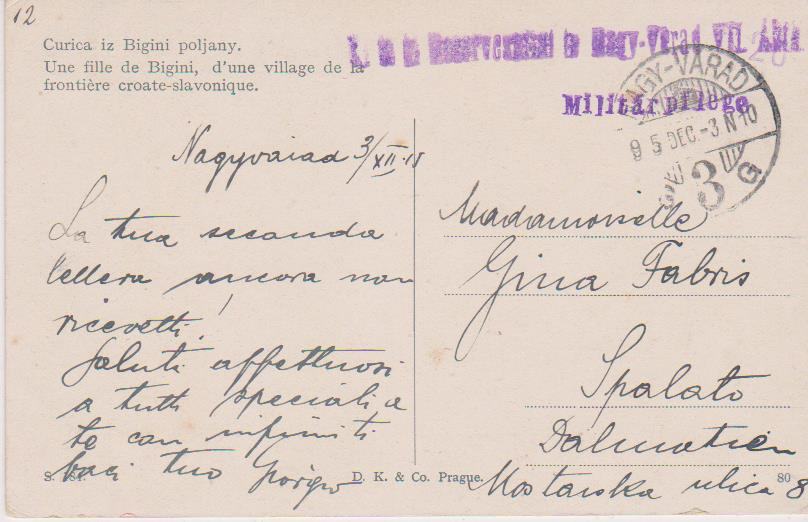 12
Curica iz Bigini poljany.
Une fille de Bigini, d'une village de la
frontière croate-slavonique.
Reservespital in Nagy-Várad VII.
Militärpflege
NAGY-VÁRAD
95 DEC.-3.N10
3 G
Nagyvarad 3/XII.15
La tua seconda
lettera ancora non
ricevetti!
Saluti affettuosi
a tutti speciali a
te con infiniti
baci tuo Giorgio
Madamoiselle
Gina Fabris
Spalato
Dalmatien
Mostarska ulica 8
S.
D. K. & Co. Prague.
80